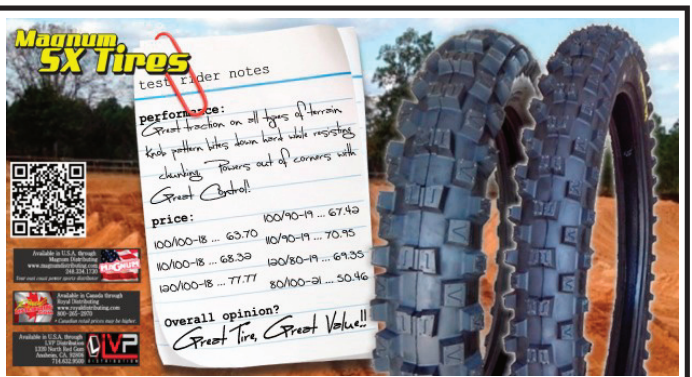 Magnum
SX Tires
test rider notes
performance:
Great traction on all types of terrain
Knob pattern bites down hard while resisting
chunking. Powers out of corners with
Great Control!
price:
100/100-18 ... 63.70
110/100-18 ... 68.32
120/100-18 ... 77.77
100/90-19 ... 67.42
110/90-19 ... 70.95
120/80-19 ... 69.35
80/100-21 ... 50.46
Overall opinion?
Great Tire, Great Value!!
Available in U.S.A. through
Magnum Distributing
www.magnumdistributing.com
Your east coast power sports distributor
MAGNUM
Available in Canada through
Royal Distributing
www.royaldistributing.com
800-265-2970
* Canadian retail prices may be higher
Available in U.S.A. through
LVP Distribution
Anaheim, CA. 92806
714.632.9500
LVP
DISTRIBUTION